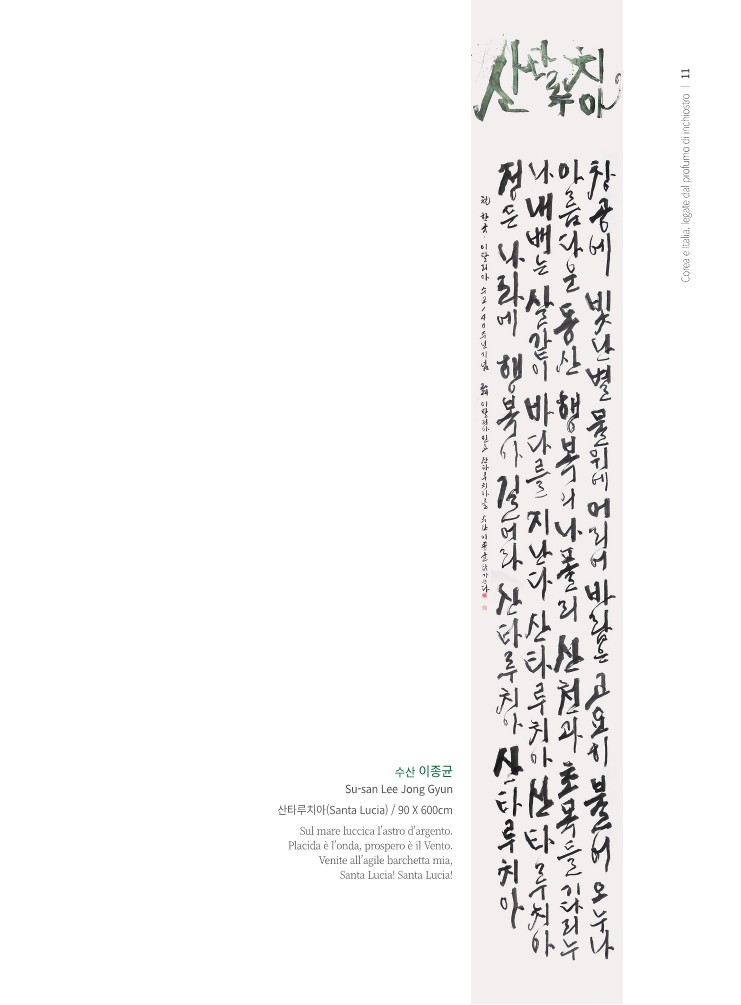 산타루치아
창공에 빛난 별 물위에 어리어 바람은 고요히 불어 오누나
아름다운 동산 행복의 나폴리 산천과 초목들 기다리누
나 내 배는 살같이 바다를 지난다 산타루치아 산타루치아
정든 나라에 행복아 길어라 산타루치아 산타루치아
한국·이탈리아 수교140주년기념 이탈리아 민요 산타루치아를 수산 이종균
수산 이종균
Su-san Lee Jong Gyun
산타루치아(Santa Lucia) / 90 X 600cm
Sul mare luccica l'astro d'argento.
Placida è l'onda, prospero è il Vento.
Venite all'agile barchetta mia,
Santa Lucia! Santa Lucia!
Corea e Italia, legate dal profumo di inchiostro | 11